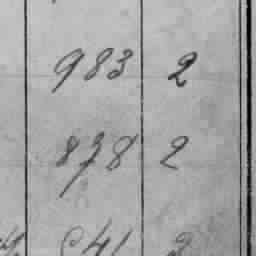 983 2
878 2